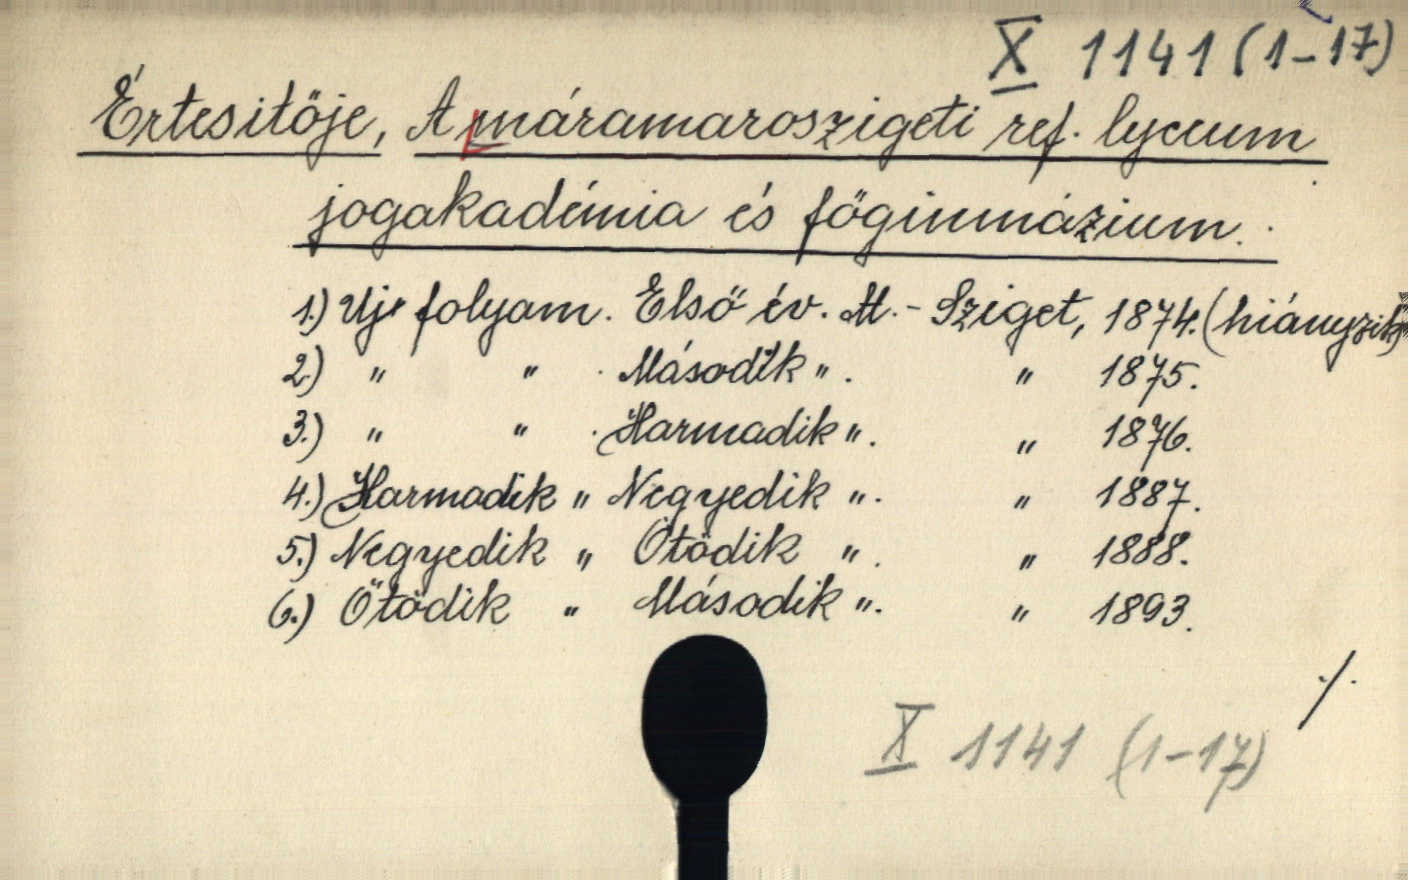 X 1141 (1-17)
Értesitöje, A máramaroszigeti ref. lyceum
jogakadémia és főginmázium.
1.) Uj folyam. Első év. M.-Sziget, 1874. (hiányzik)
2.) " " . Második ". " 1875.
3.) " " . Harmadik ". " 1876.
4.) Harmadik " Negyedik ". " 1887.
5.) Negyedik " Ötödik ". " 1888.
6.) Ötödik " Második ". " 1893.
./.
X 1141 (1-17)